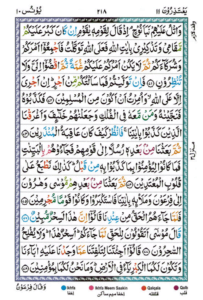 يَعْتَذِرُوْنَ ١١ ٢١٨ يُوْنُس ١٠
وَاتْلُ عَلَيْهِمْ نَبَاَ نُوْحٍ اِذْ قَالَ لِقَوْمِهٖ يٰقَوْمِ اِنْ كَانَ كَبُرَ عَلَيْكُمْ
مَّقَامِيْ وَتَذْكِيْرِيْ بِاٰيٰتِ اللّٰهِ فَعَلَى اللّٰهِ تَوَكَّلْتُ فَاَجْمِعُوْۤا اَمْرَكُمْ
وَشُرَكَآءَكُمْ ثُمَّ لَا يَكُنْ اَمْرُكُمْ عَلَيْكُمْ غُمَّةً ثُمَّ اقْضُوْۤا اِلَيَّ وَلَا
تُنْظِرُوْنِ فَاِنْ تَوَلَّيْتُمْ فَمَا سَاَلْتُكُمْ مِّنْ اَجْرٍ اِنْ اَجْرِيَ
اِلَّا عَلَى اللّٰهِ وَاُمِرْتُ اَنْ اَكُوْنَ مِنَ الْمُسْلِمِيْنَ فَكَذَّبُوْهُ
فَنَجَّيْنٰهُ وَمَنْ مَّعَهٗ فِي الْفُلْكِ وَجَعَلْنٰهُمْ خَلٰٓئِفَ وَاَغْرَقْنَا
الَّذِيْنَ كَذَّبُوْا بِاٰيٰتِنَا فَانْظُرْ كَيْفَ كَانَ عَاقِبَةُ الْمُنْذَرِيْنَ ثُمَّ
بَعَثْنَا مِنْ بَعْدِهٖ رُسُلًا اِلٰى قَوْمِهِمْ فَجَآءُوْهُمْ بِالْبَيِّنٰتِ
فَمَا كَانُوْا لِيُؤْمِنُوْا بِمَا كَذَّبُوْا بِهٖ مِنْ قَبْلُ كَذٰلِكَ نَطْبَعُ عَلٰى
قُلُوْبِ الْمُعْتَدِيْنَ ثُمَّ بَعَثْنَا مِنْ بَعْدِهِمْ مُّوْسٰى وَهٰرُوْنَ
اِلٰى فِرْعَوْنَ وَمَلَا۟ئِهٖ بِاٰيٰتِنَا فَاسْتَكْبَرُوْا وَكَانُوْا قَوْمًا مُّجْرِمِيْنَ
فَلَمَّا جَآءَهُمُ الْحَقُّ مِنْ عِنْدِنَا قَالُوْۤا اِنَّ هٰذَا لَسِحْرٌ مُّبِيْنٌ
قَالَ مُوْسٰۤى اَتَقُوْلُوْنَ لِلْحَقِّ لَمَّا جَآءَكُمْ اَسِحْرٌ هٰذَا وَلَا يُفْلِحُ
السّٰحِرُوْنَ قَالُوْۤا اَجِئْتَنَا لِتَلْفِتَنَا عَمَّا وَجَدْنَا عَلَيْهِ اٰبَآءَنَا
وَتَكُوْنَ لَكُمَا الْكِبْرِيَآءُ فِي الْاَرْضِ وَمَا نَحْنُ لَكُمَا بِمُؤْمِنِيْنَ
وَقَالَ فِرْعَوْنُ